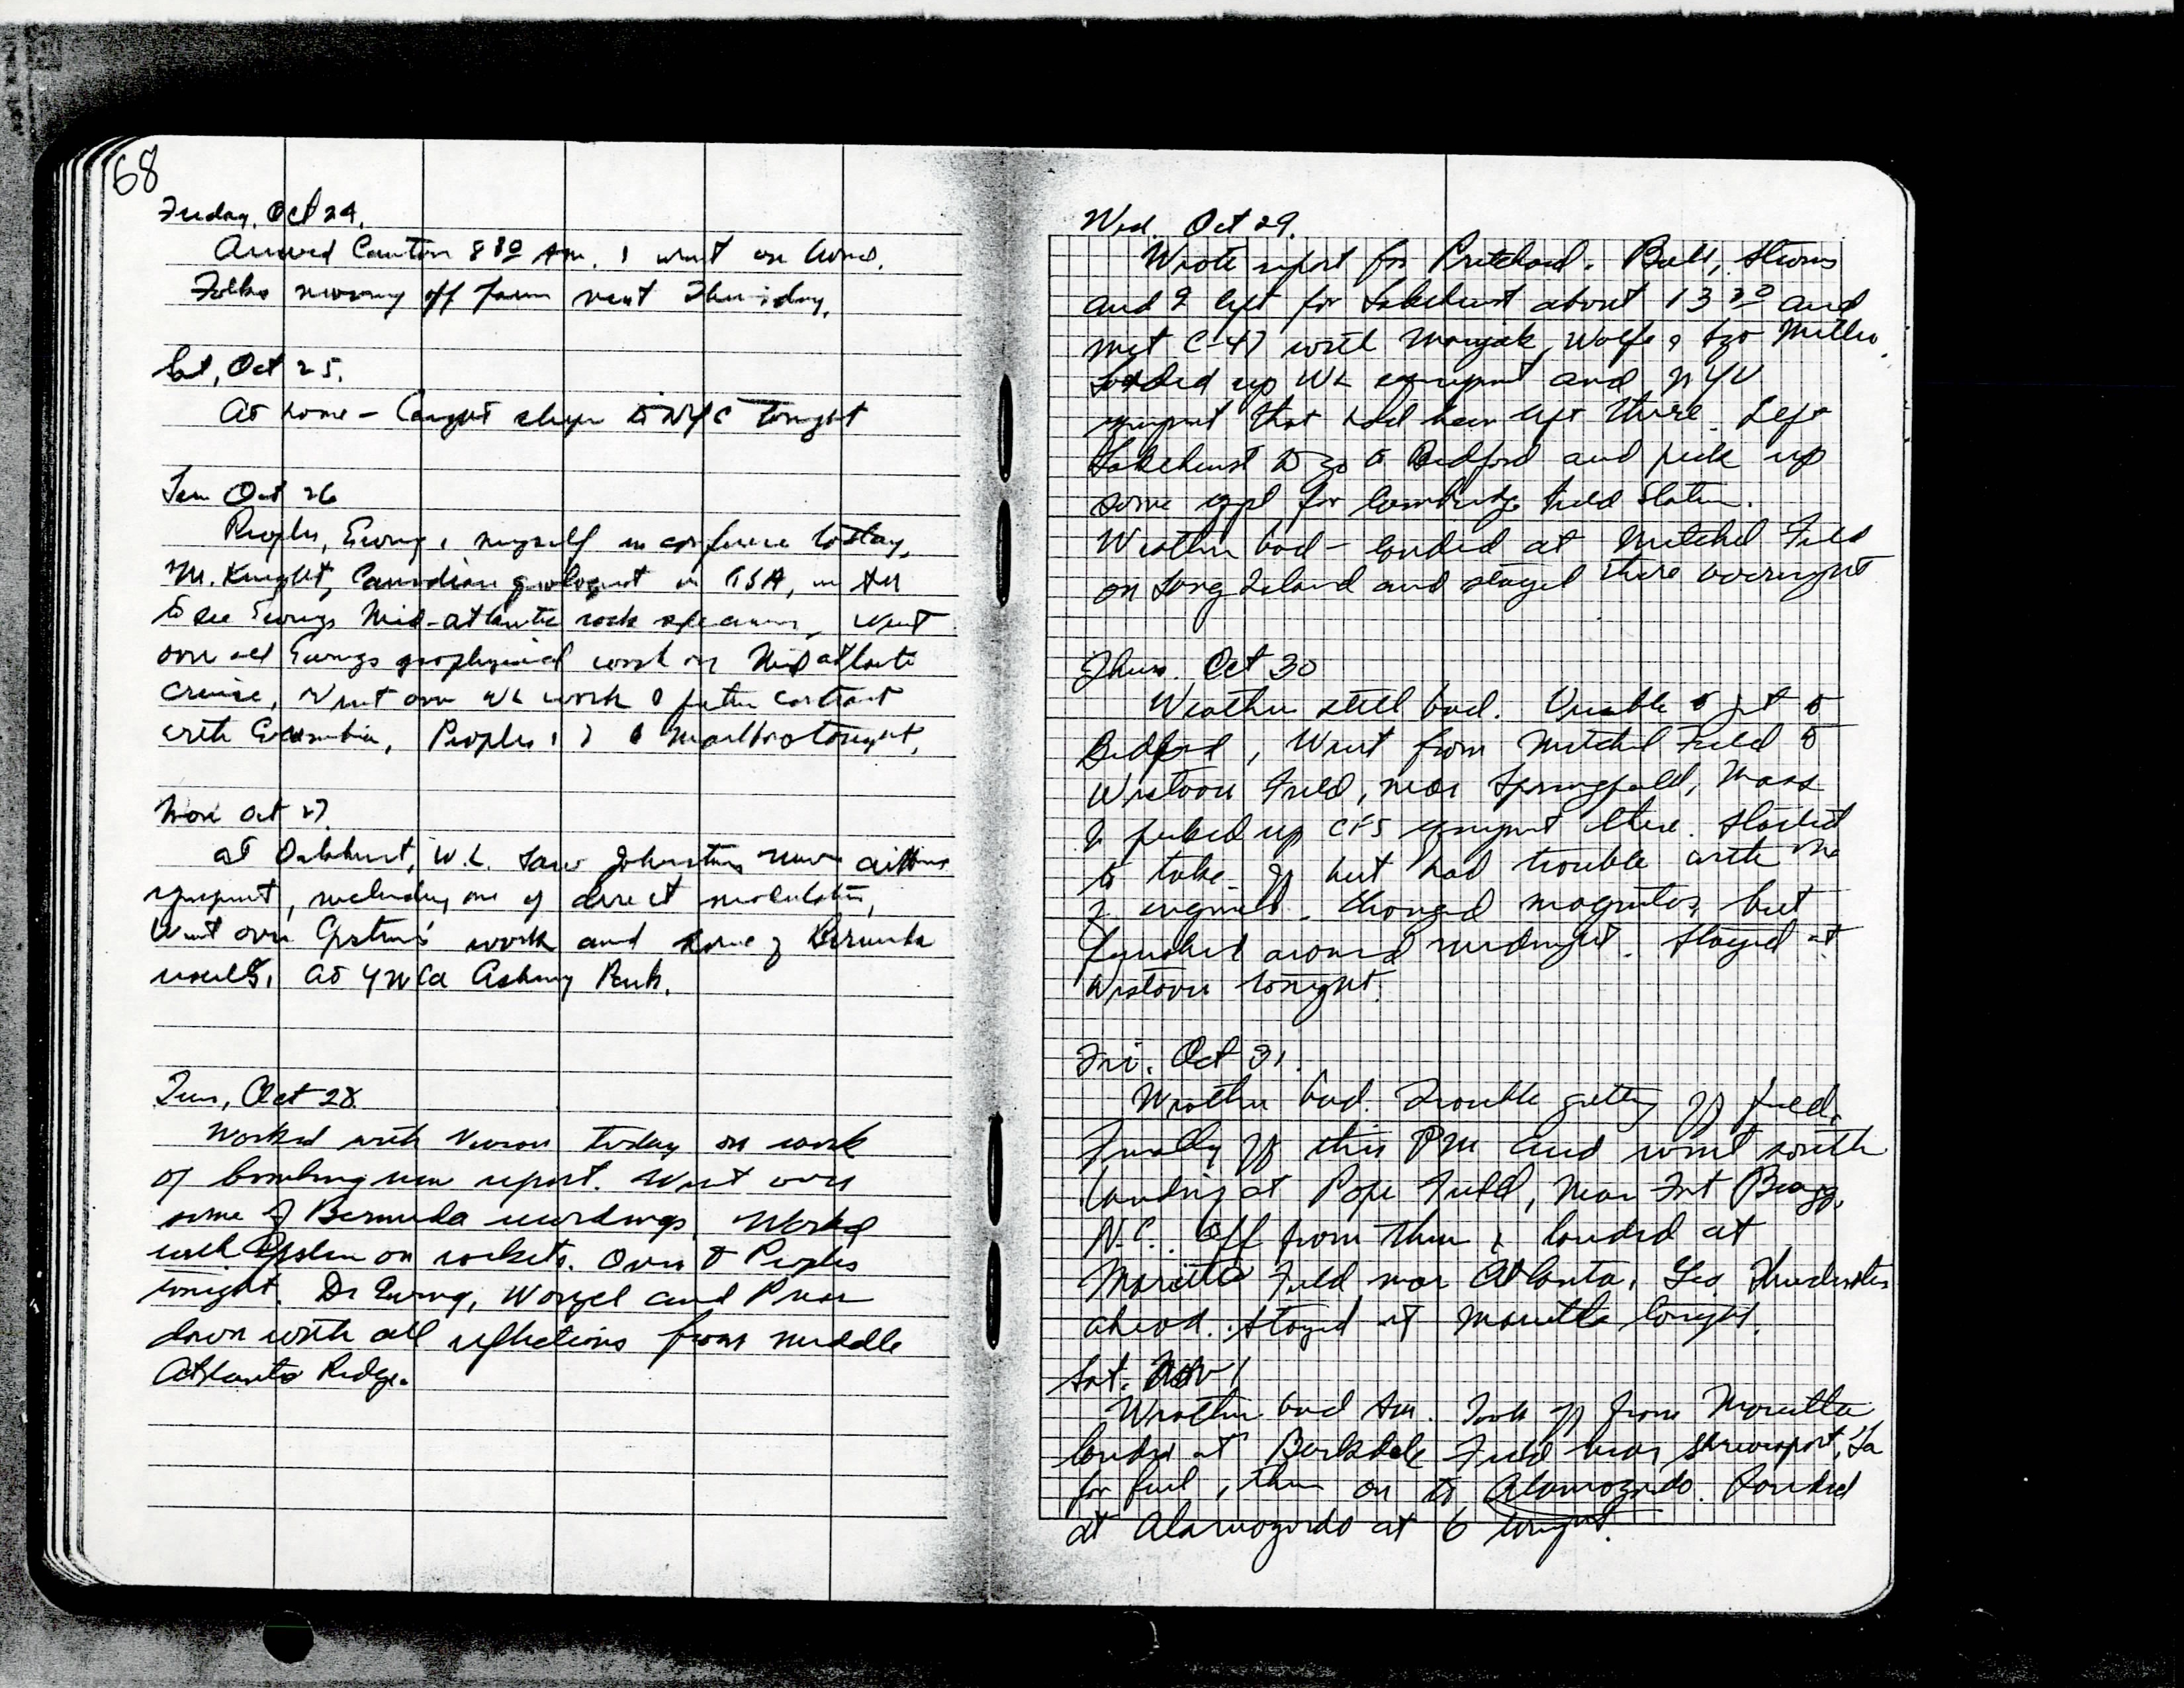 68
Friday, Oct 24.
Arrived Canton 8 30 AM. & went on home.
Folks moving off farm next Thursday.
Sat, Oct 25.
At home - Caught sleeper to NYC tonight
Sun Oct 26
Peoples, Ewing & myself in conference today.
M. Knight, Canadian geologist in GSA, in
to see Ewings Mid-atlantic rock specimens, Went
over all Ewings geophysical work on Mid atlantic
cruise, Went over WL work & future contract
with Columbia, Peoples & I to tonight.
Mon Oct 27
at Oakhurst, W.L. Saw Johnstons new
equipment, including one of direct modulation,
Went over work and some of Bermuda
results. At YMCA Asbury Park.
Tues, Oct 28
Worked with Vivian today on work
of bombing run report. Went over
some of Bermuda recordings. Worked
with on rockets. Over to Peoples
tonight. Dr Ewing, Worzel and Press
down with all reflections from middle
Atlantic Ridge.
Wed. Oct 29.
Wrote report for Pritchard. Ball,
and I left for Lakehurst about 13 30 and
met C-47 with Wolfe & Sgt
Loaded up WL equipment and NYU
equipment that had been left there. Left
Lakehurst to go to Bedford and pick up
some eqpt for Cambridge Field Station.
Weather bad - landed at Mitchel Field
on Long Island and stayed there overnight
Thurs. Oct 30
Weather still bad. Unable to get to
Bedford, Went from Mitchel Field to
Westover Field, near Springfield, Mass
& picked up CFS equipment there. Started
to take off but had trouble with one
of engines. Changed magnetos, but
finished around midnight. Stayed at
Westover tonight.
Fri. Oct 31.
Weather bad. Trouble getting off field.
Finally off this PM and went south
landing at Pope Field, near Fort Bragg,
N.C. Off from then & landed at
Marietta Field near Atlanta, Geo. Thunderstorms
ahead. Stayed at Marietta tonight.
Sat. Nov 1
Weather bad AM. Took off from Marietta
landed at Barksdale Field near Shreveport, La
for fuel, then on to Alamogordo. Landed
at Alamogordo at 6 tonight.